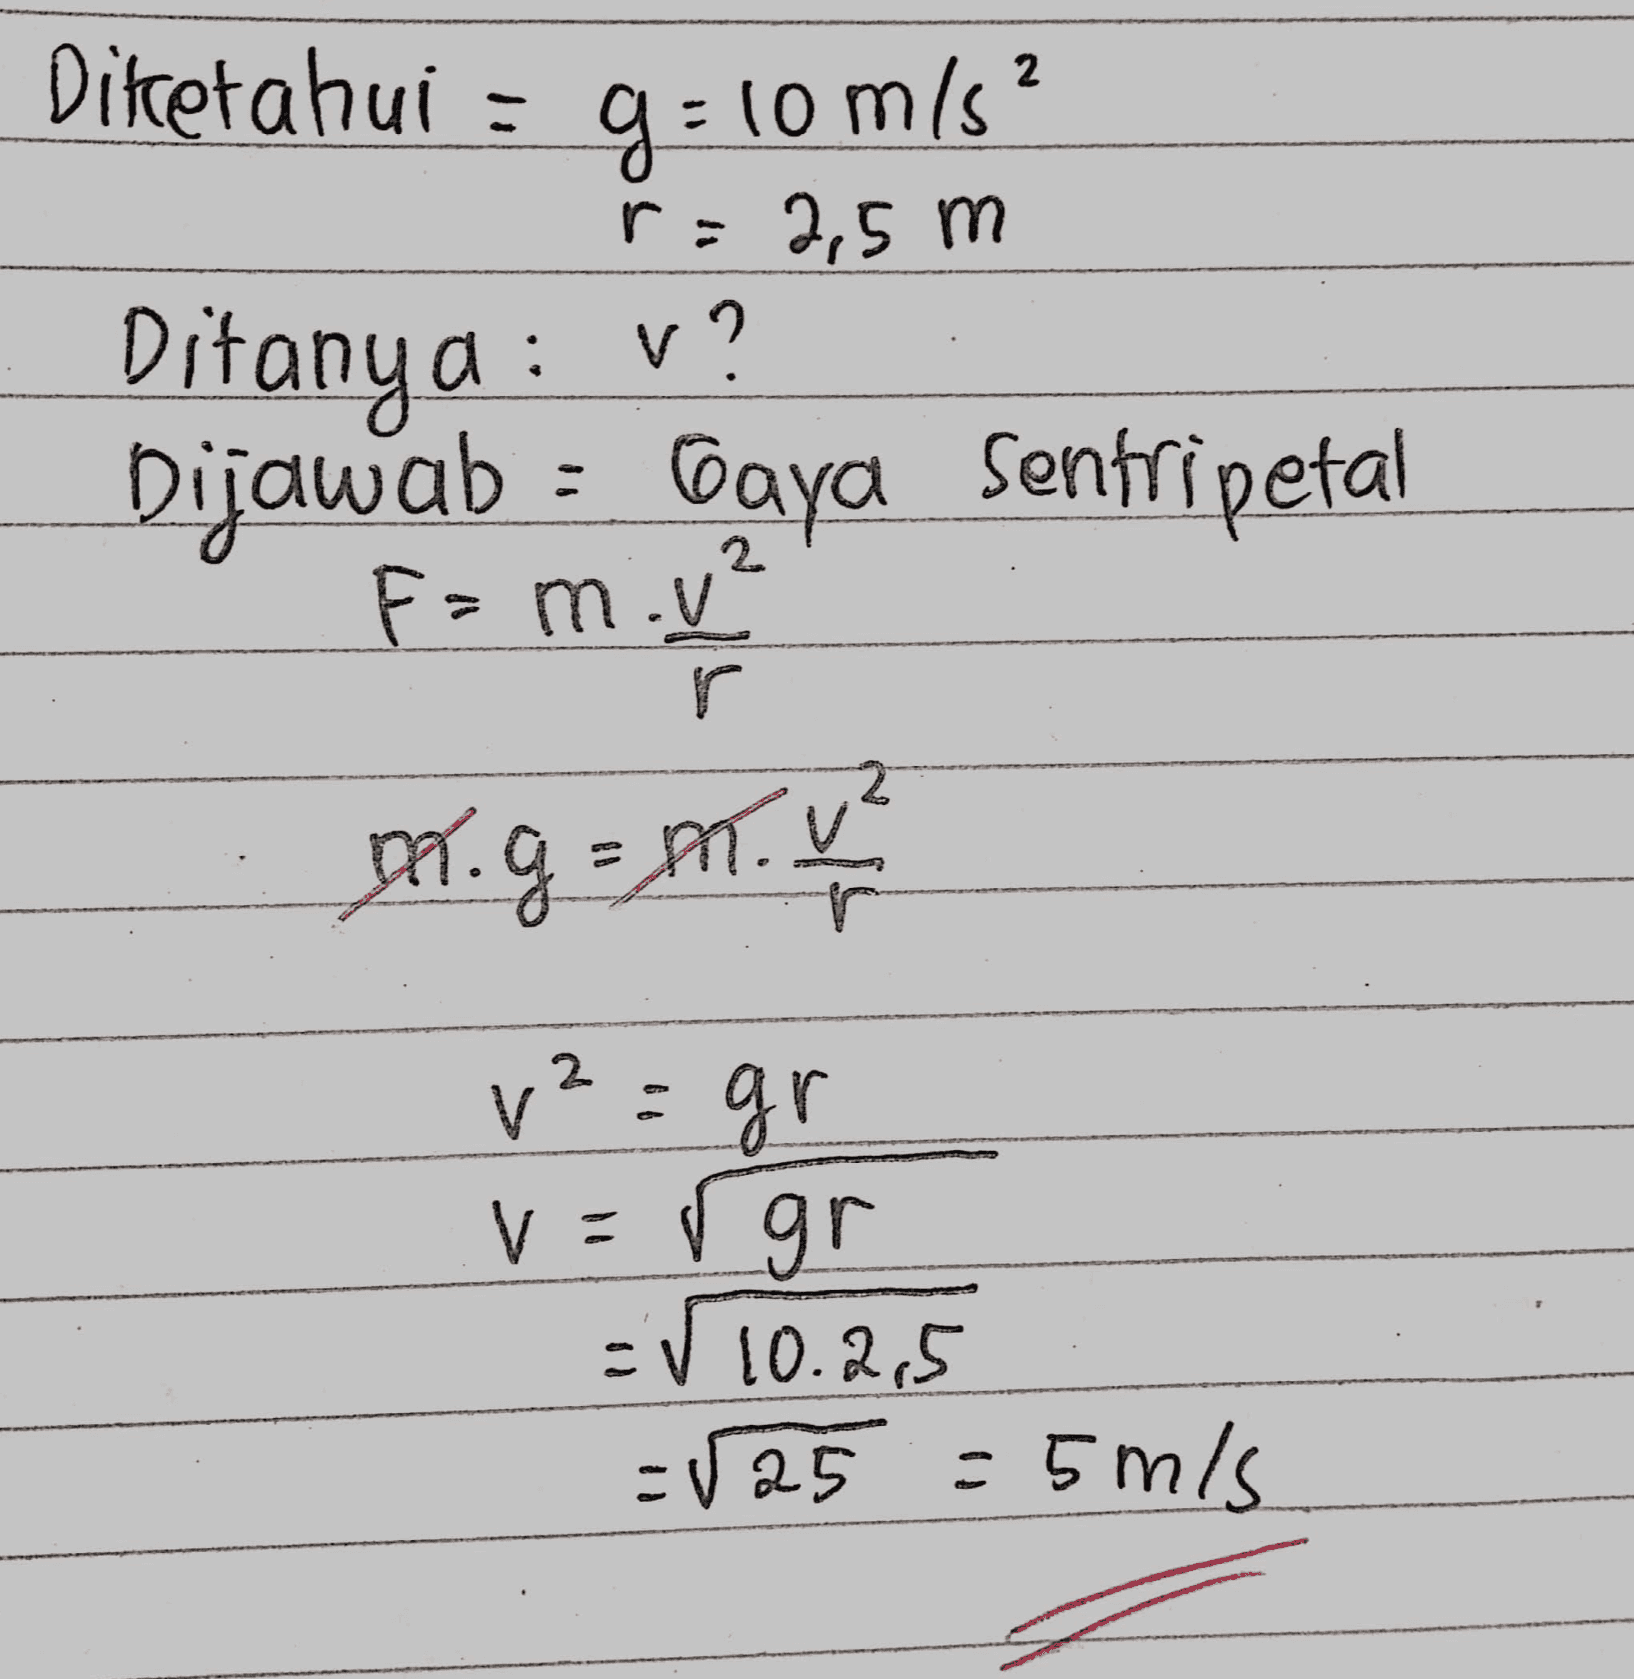 Diketahui = g = 10 m/s²
r = 2,5 m
Ditanya : v ?
Dijawab = Gaya Sentripetal
F = m . v²/r
m . g = m . v²/r
v² = gr
v = √gr
= √10 . 2,5
= √25 = 5 m/s